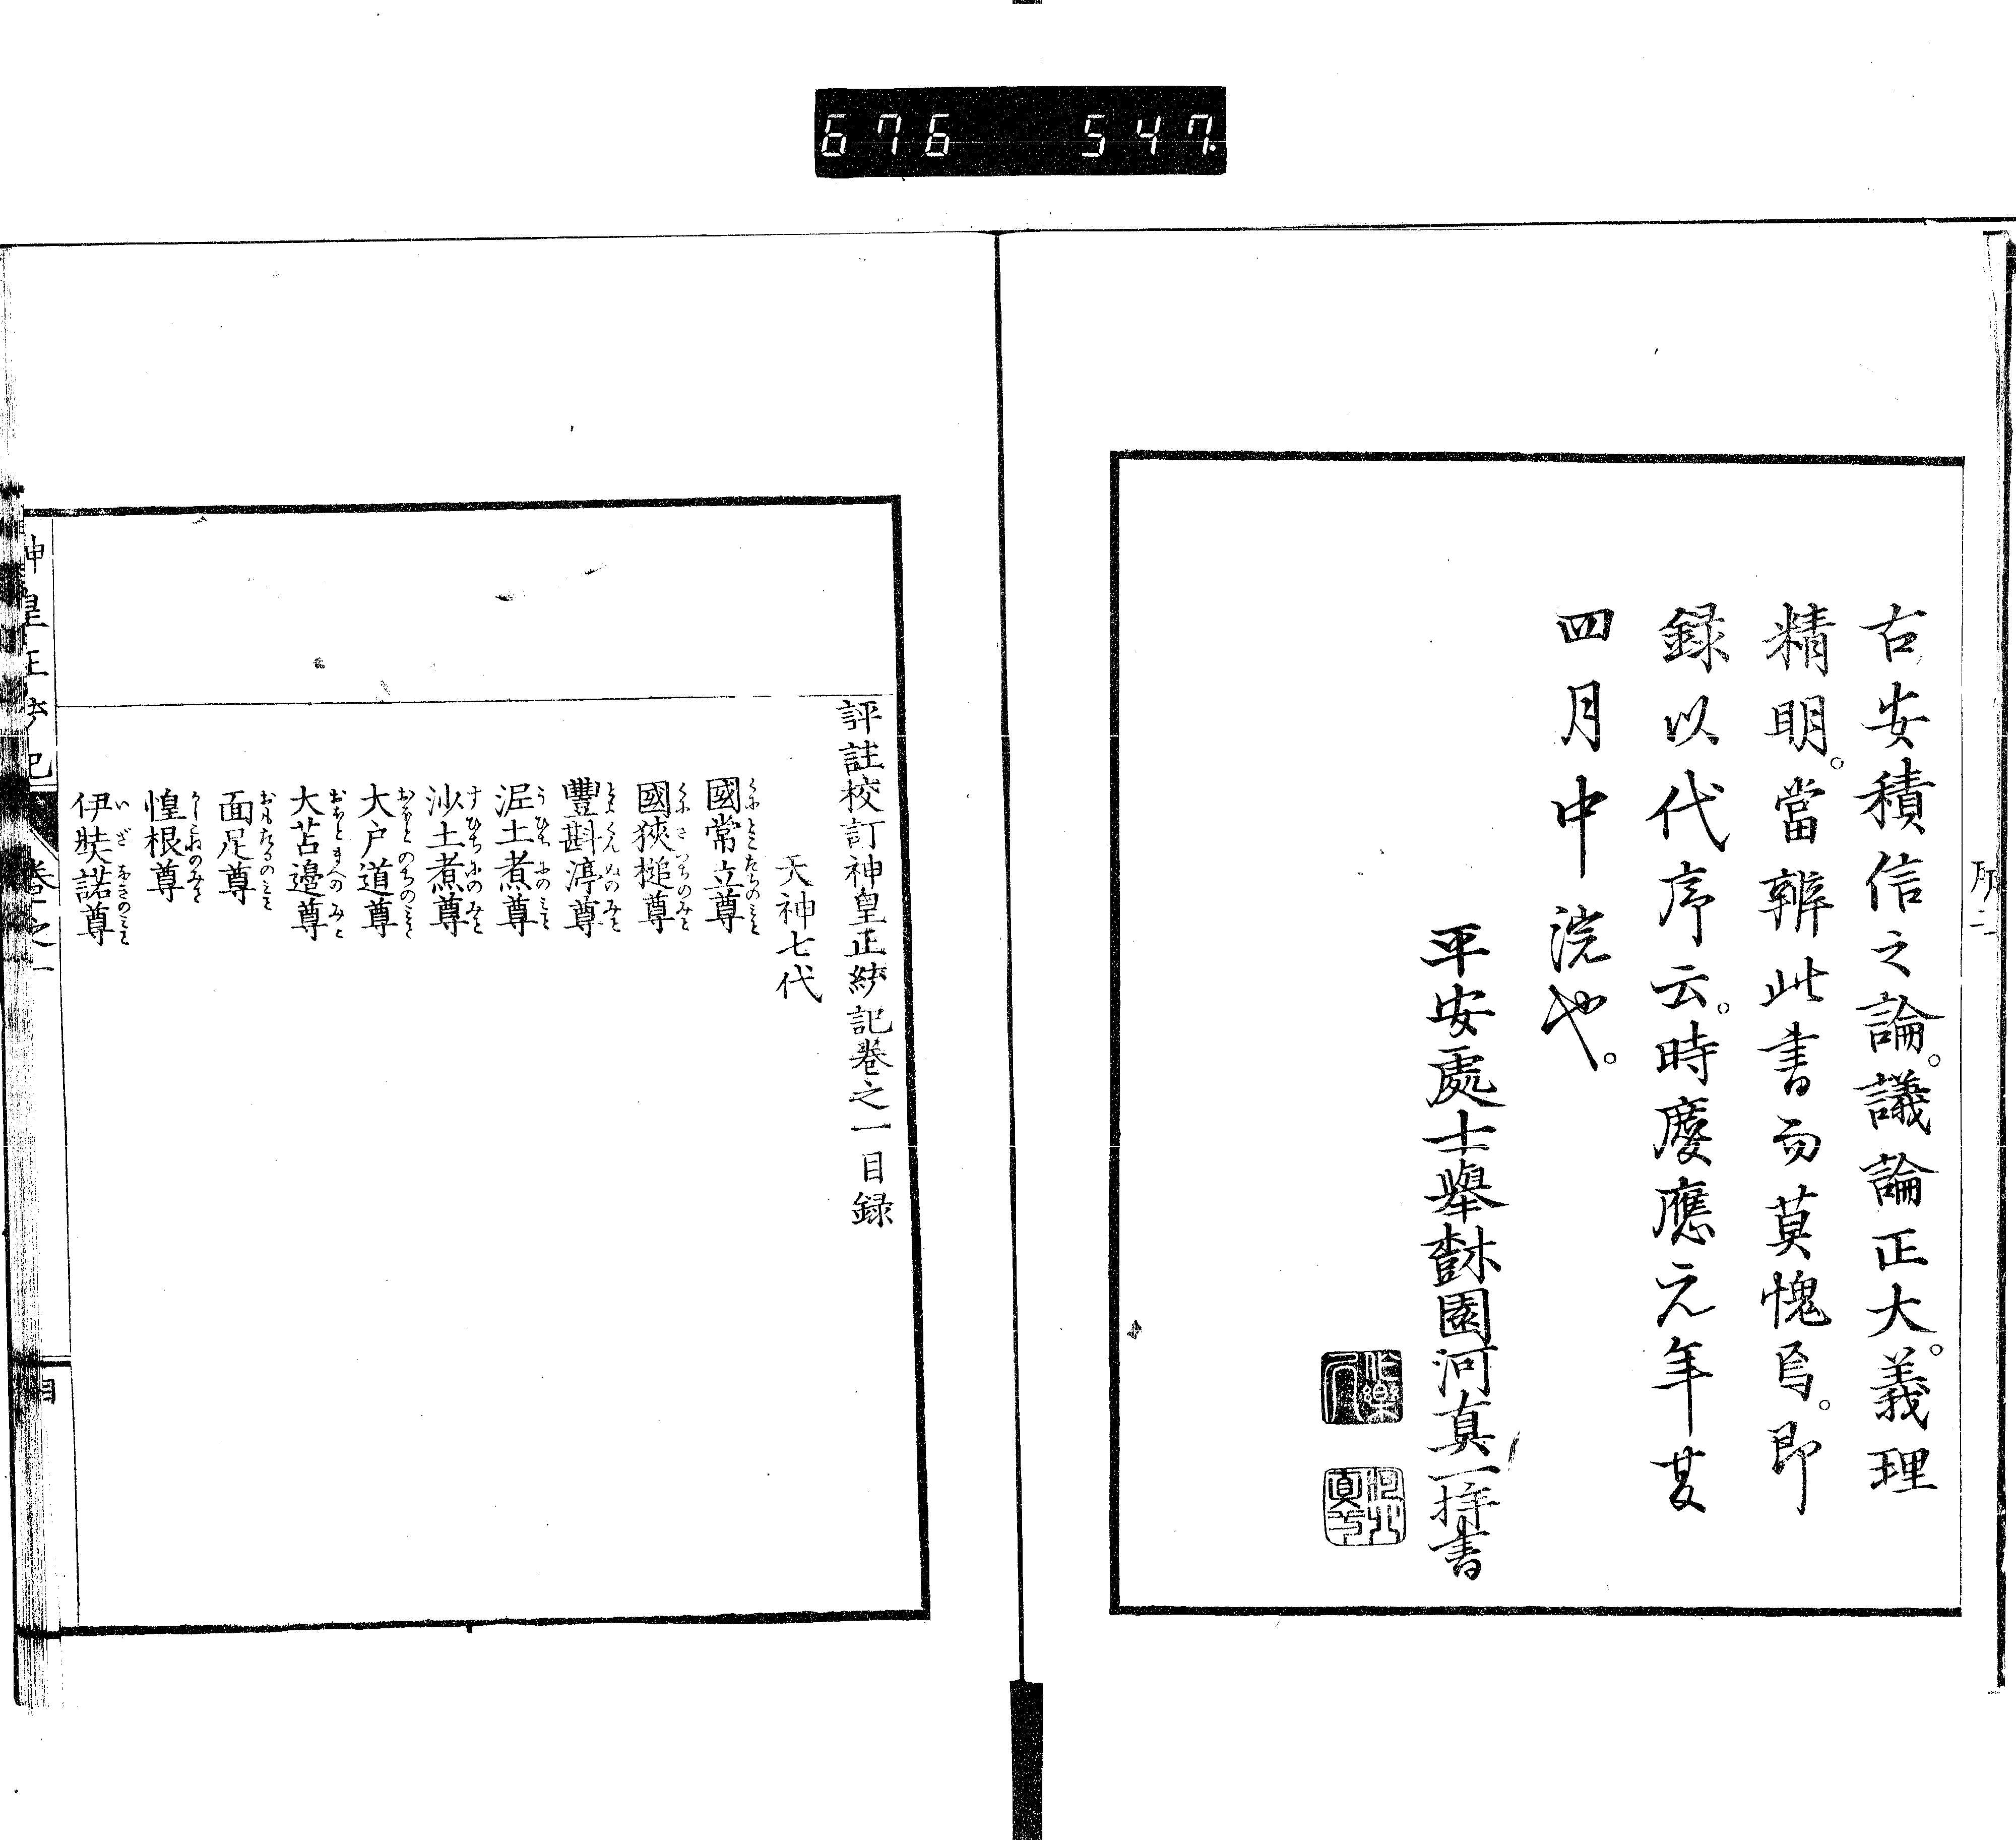 676 547.
序 二
右安積信之論。議論正大。義理
精明。當辨此書而莫愧焉。即
録以代序云。時慶應元年夏
四月中浣也。
平安處士擧園河真一拝書
評註校訂神皇正統記巻之一目録
天神七代
國常立尊
くにとこたちのみこと
國狹槌尊
くにさつちのみこと
豐斟渟尊
とよくんぬのみこと
泥土煮尊
うひちにのみこと
沙土煮尊
すひちにのみこと
大戸道尊
おほとのちのみこと
大苫邊尊
おほとまへのみこと
面足尊
おもたるのみこと
惶根尊
かしこねのみこと
伊弉諾尊
いざなきのみこと
神皇正統記
巻之一
目